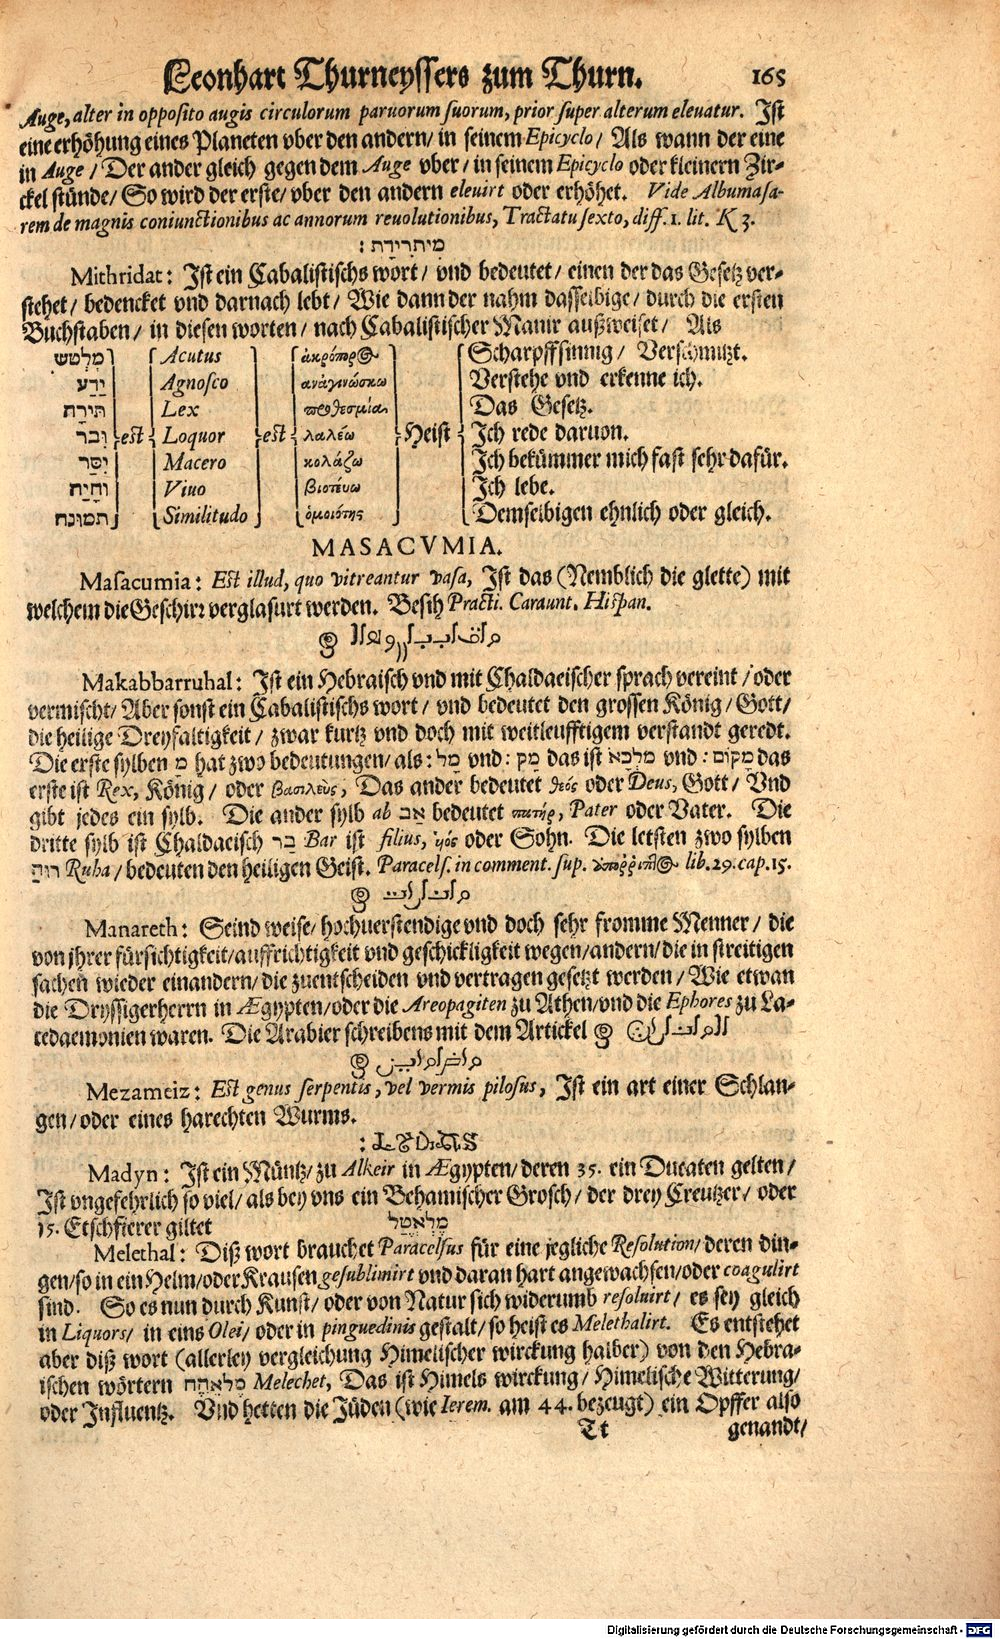 Leonhart Thurneyssers zum Thurn. 165
Auge, alter in opposito augis circulorum paruorum suorum, prior super alterum elevatur. Ist
eine erhöhung eines Planeten vber den andern/ in seinem Epicyclo/ Als wann der eine
in Auge/ Der ander gleich gegen dem Auge vber/ in seinem Epicyclo oder kleinern Zir-
ckel stünde/ So wird der erste/ vber den andern elevirt oder erhöhet. Vide Albumasa-
rem de magnis coniunctionibus ac annorum reuolutionibus, Tractatu sexto, diff. 1. lit. K 3.
מִיתרִידַת :
Mithridat: Ist ein Cabalistischs wort/ vnd bedeutet/ einen der das Gesetz ver-
stehet/ bedencket vnd darnach lebt/ Wie dann der nahm dasselbige/ durch die ersten
Buchstaben/ in diesen worten/ nach Cabalistischer Manir außweiset/ Als
מלטש Acutus Scharpffsinnig/ Verschmitzt.
יַדַע Agnosco ἀναγινώσκω Verstehe vnd erkenne ich.
תירַת Lex προθεσμία Das Gesetz.
est Loquor est λαλέω Heist Ich rede daruon.
יסר Macero κολάζω Ich bekümmer mich fast sehr dafür.
Viuo βιοτεύω Ich lebe.
תמונת Similitudo ὁμοιότης Demselbigen ehnlich oder gleich.
MASACVMIA.
Masacumia: Est illud, quo vitreantur vasa, Ist das (Nemblich die glette) mit
welchem die Geschirr verglasurt werden. Besih Practi. Caraunt. Hispan.
Makabbarruhal: Ist ein Hebraisch vnd mit Chaldaeischer sprach vereint/ oder
vermischt/ Aber sonst ein Cabalistischs wort/ vnd bedeutet den grossen König/ Gott/
die heilige Dreyfaltigkeit/ zwar kurtz vnd doch mit weitleufftigem verstandt geredt.
Die erste sylben מַ hat zwo bedeutungen/ als: מַל vnd: מַק: das ist מלכא vnd: מקום das
erste ist Rex, König/ oder βασιλεὺς, Das ander bedeutet θεός oder Deus, Gott/ Vnd
gibt jedes ein sylb. Die ander sylb ab אב bedeutet πατήρ, Pater oder Vater. Die
dritte sylb ist Chaldaeisch בַר Bar ist filius, oder Sohn. Die letsten zwo sylben
רוח Ruha/ bedeuten den heiligen Geist. Paracels. in comment. sup. lib. 29. cap. 15.
Manareth: Seind weise/ hochuerstendige vnd doch sehr fromme Menner/ die
von jhrer fürsichtigkeit/ auffrichtigkeit vnd geschickligkeit wegen/ andern/ die in streitigen
sachen wieder einandern/ die zuentscheiden vnd vertragen gesetzt werden/ Wie etwan
die Dryssigerherrn in Ægypten/ oder die Areopagiten zu Athen/ vnd die Ephores zu La-
cedaemonien waren. Die Arabier schreibens mit dem Artickel
Mezameiz: Est genus serpentis, vel vermis pilosus, Ist ein art einer Schlan-
gen/ oder eines harechten Wurms.
Madyn: Ist ein Müntz/ zu Alkeir in Ægypten/ deren 35. ein Ducaten gelten/
Ist vngefehrlich so viel/ als bey vns ein Behamischer Grosch/ der drey Creutzer/ oder
15. Etschfierer giltet
Melethal: Diß wort brauchet Paracelsus für eine jegliche Resolution/ deren din-
gen/ so in ein Helm/ oder Krausen gesublimirt vnd daran hart angewachsen/ oder coagulirt
sind. So es nun durch Kunst/ oder von Natur sich widerumb resoluirt/ es sey gleich
in Liquors/ in eins Olei/ oder in pinguedinis gestalt/ so heist es Melethalirt. Es entstehet
aber diß wort (allerley vergleichung Himelischer wirckung halber) von den Hebra-
ischen wörtern Melechet, Das ist Himels wirckung/ Himelische Witterung/
oder Influentz. Vnd hetten die Jüden (wie Ierem. am 44. bezeugt) ein Opffer also
Tt genandt/
Digitalisierung gefördert durch die Deutsche Forschungsgemeinschaft - DFG